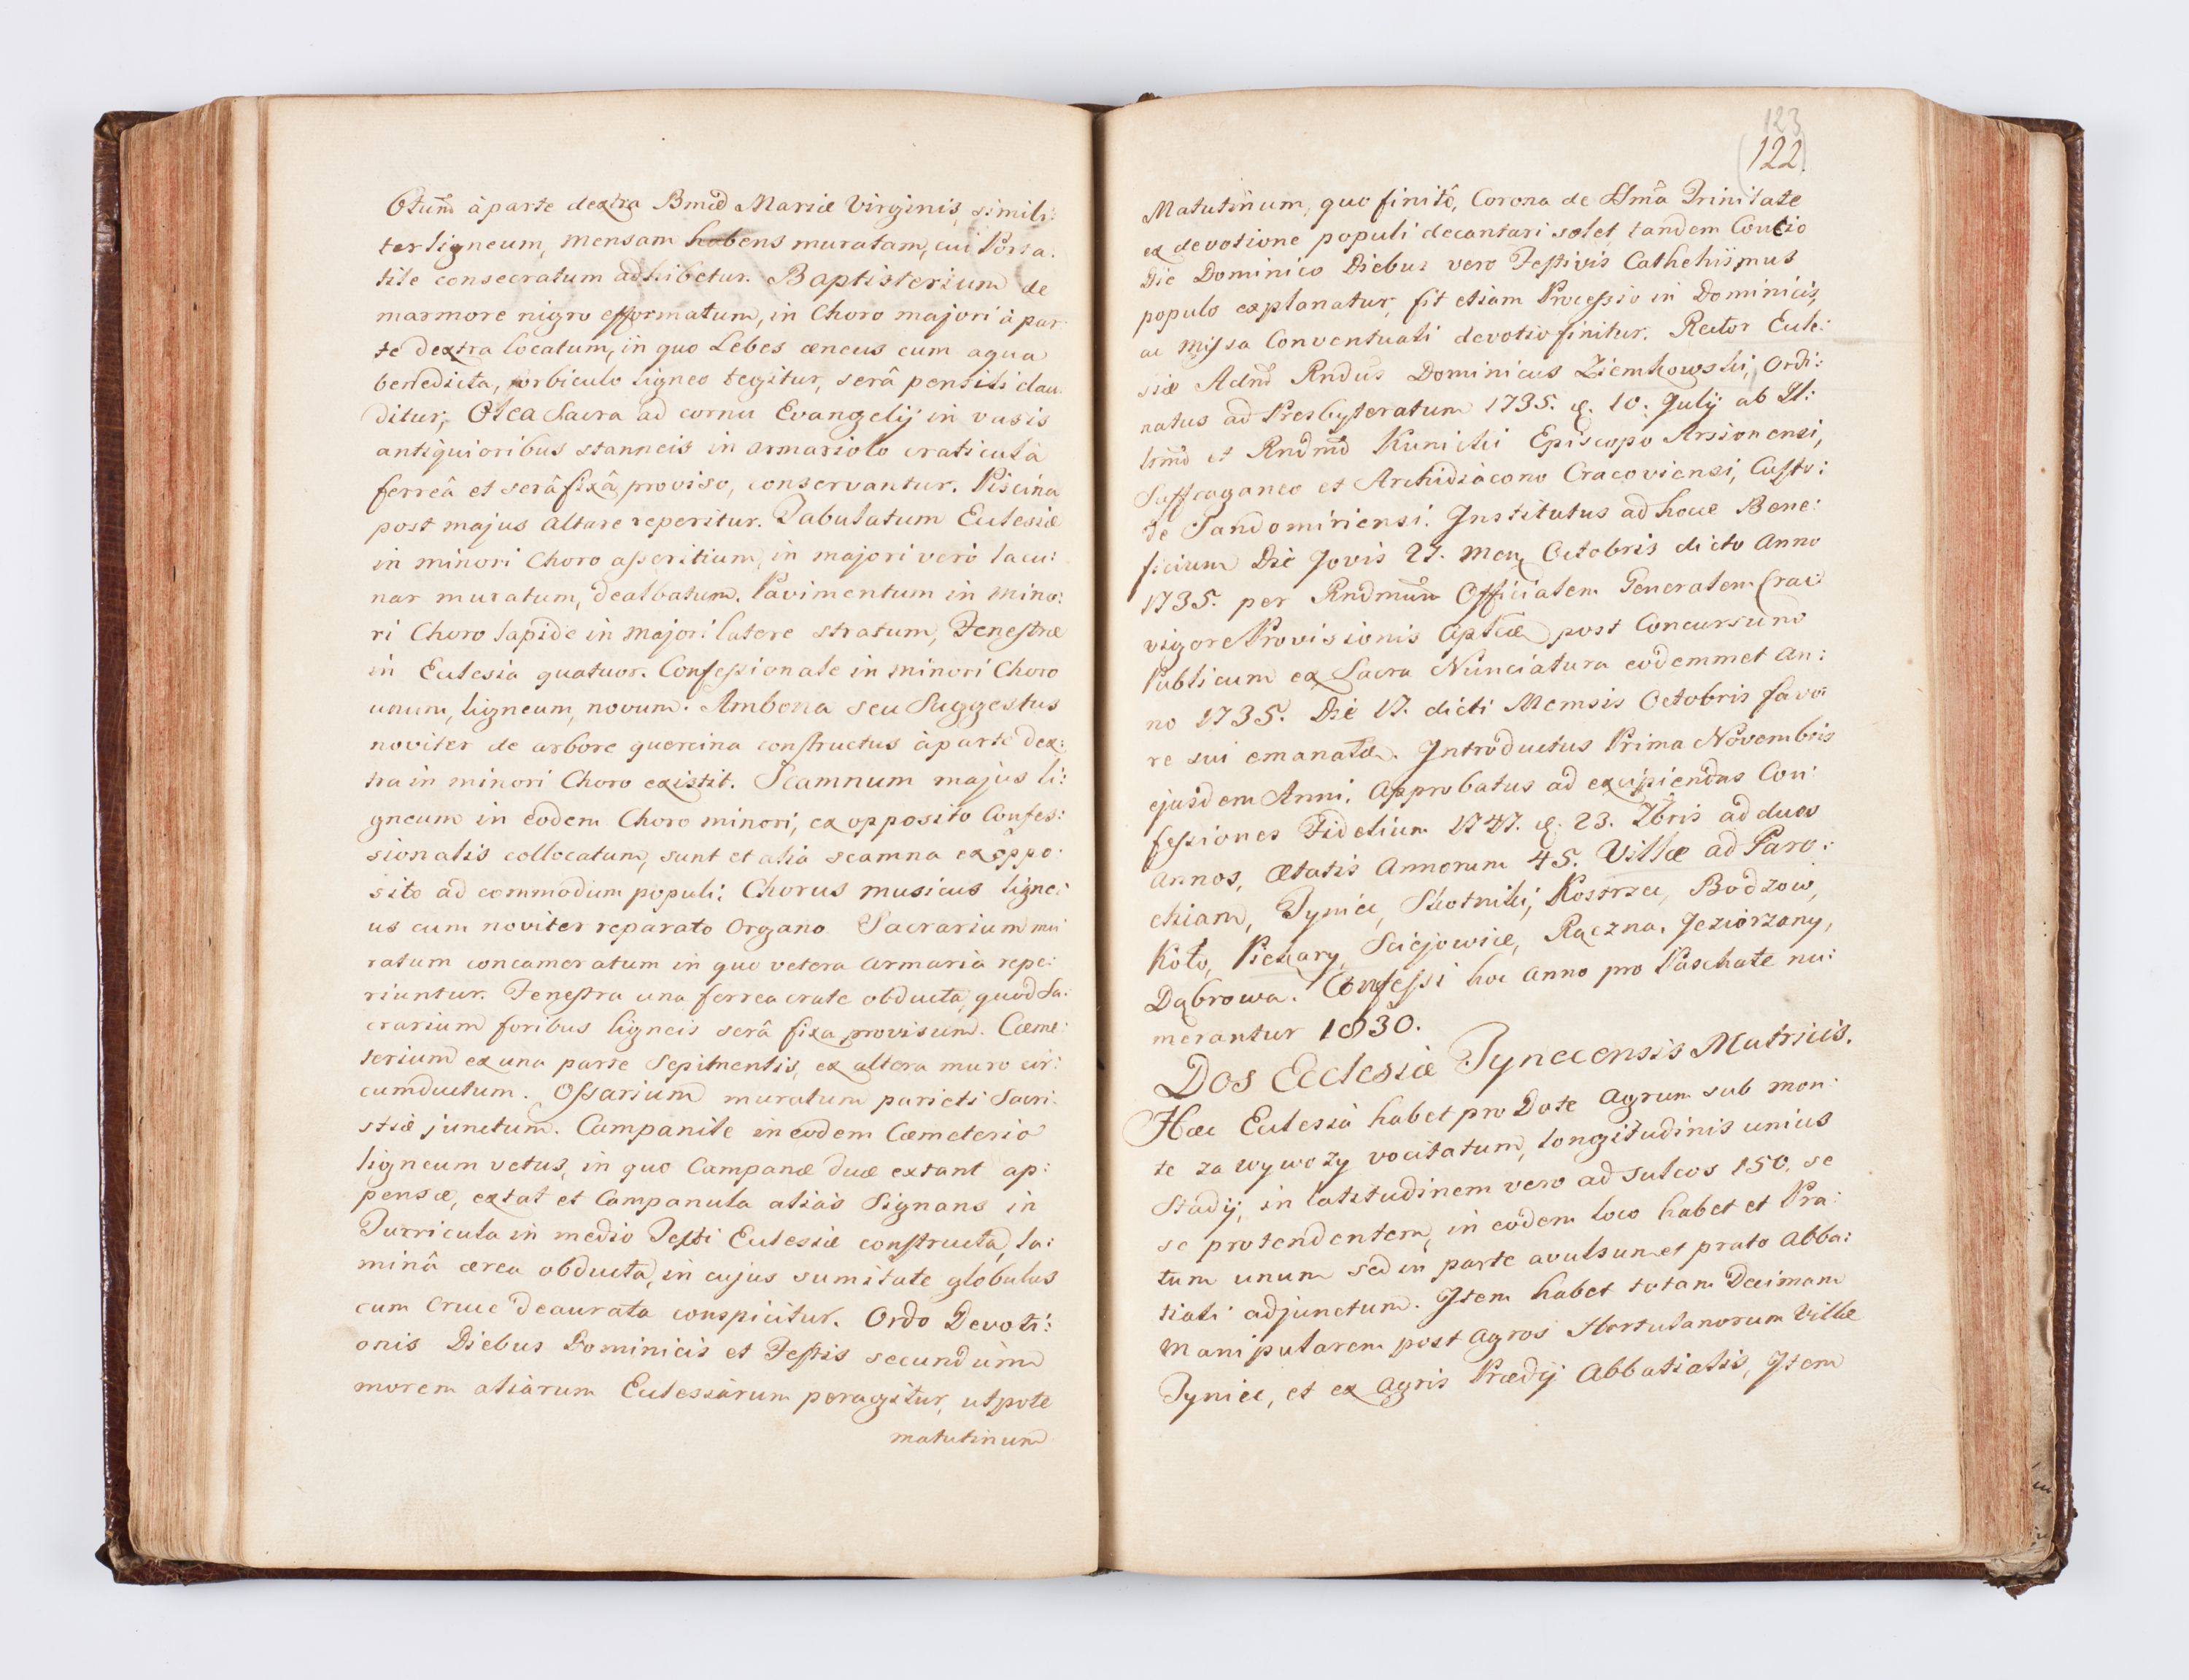 Otum à parte dextra Bmæ Mariæ Virginis, simili:
ter ligneum, mensam habens muratam, cui Porta:
tile consecratum adhibetur. Baptisterium de
marmore nigro efformatum, in Choro majori à par:
te dextra locatum, in quo Lebes æneus cum aqua
benedicta, orbiculo ligneo tegitur, serâ pensili clau:
ditur; Olea Sacra ad cornu Evangelij in vasis
antiquioribus stanneis in armariolo craticulâ
ferreâ et serâ fixâ proviso, conservantur. Piscina
post majus Altare reperitur. Tabulatum Ecclesiæ
in minori Choro asseritium, in majori verò lacu:
nar muratum, dealbatum. Pavimentum in mino:
ri Choro lapide in majori latere stratum, Fenestræ
in Ecclesia quatuor. Confessionale in minori Choro
unum, ligneum, novum. Ambona seu Suggestus
noviter de arbore quercina constructus à parte dex:
tra in minori Choro existit. Scamnum majus li:
gneum in eodem Choro minori, ex opposito Confes:
sionalis collocatum, sunt et alia scamna ex oppo:
sito ad commodum populi; Chorus musicus ligne:
us cum noviter reparato Organo. Sacrarium mu
ratum concameratum in quo vetera armaria repe:
riuntur. Fenestra una ferrea crate obducta, quod Sa:
crarium foribus ligneis serâ fixa provisum. Cæme:
terium ex una parte Sepimentis, ex altera muro cir:
cumductum. Ossarium muratum parieti Sacri:
stiæ junctum. Campanile in eodem Cæmeterio
ligneum vetus, in quo Campanæ duæ extant ap:
pensæ, extat et Campanula aliàs Signans in
Turricula in medio Tecti Ecclesiæ constructa, la:
minâ ærea obducta, in cujus sumitate globulus
cum Cruce deaurata conspicitur. Ordo Devoti:
onis Diebus Dominicis et Festis secundùm
morem aliarum Ecclesiarum peragitur, utpote
matutinum
123
(122)
Matutinum, quo finitô, Corona de SSmâ Trinitate
ex devotione populi decantari solet, tandem Concio
Die Dominico Diebus vero Festivis Cathehismus
populo explanatur, fit etiam Processio in Dominicis,
ac Missa Conventuali devotio finitur. Rector Eccle:
siæ Adnd Rndus Dominicus Ziemkowski, Ordi:
natus ad Presbyteratum 1735. d. 10. Julij ab Il:
lrmo et Rndmo Kunicki Episcopo Arsionensi,
Suffraganeo et Archidiacono Cracoviensi, Custo:
de Sandomiriensi. Institutus ad hocce Bene:
ficium Die Jovis 27. Men Octobris dicto Anno
1735. per Rndmum Officialem Generalem Crac
vigore Provisionis Apticæ post Concursum
Publicum ex Sacra Nunciatura eodemmet An:
no 1735. Die 17. dicti Mensis Octobris favo
re sui emanatæ. Introductus Prima Novembris
ejusdem Anni. Approbatus ad excipiendas Con:
fessiones Fidelium 1747. d. 23. Xbris ad duos
annos, Ætatis Annorum 45. Villæ ad Paro:
chiam, Tyniec, Skotniki, Kostrzec, Bodzow,
Koło, Piekary, Sciejowice, Rączna, Jeziorzany,
Dąbrowa. Confessi hoc anno pro Paschate nu:
merantur 1830.
Dos Ecclesiæ Tynecensis Matricis.
Hæc Ecclesia habet pro Dote Agrum sub mon:
te za wywozy vocitatum, longitudinis unius
Stadij, in latitudinem vero ad sulcos 150. se
se protendentem, in eodem loco habet et Pra:
tum unum sed in parte avulsum et prato Abba:
tiali adjunctum. Item habet totam Decimam
Manipularem post Agros Hortulanorum Villæ
Tyniec, et ex Agris Prædij Abbatialis, Item